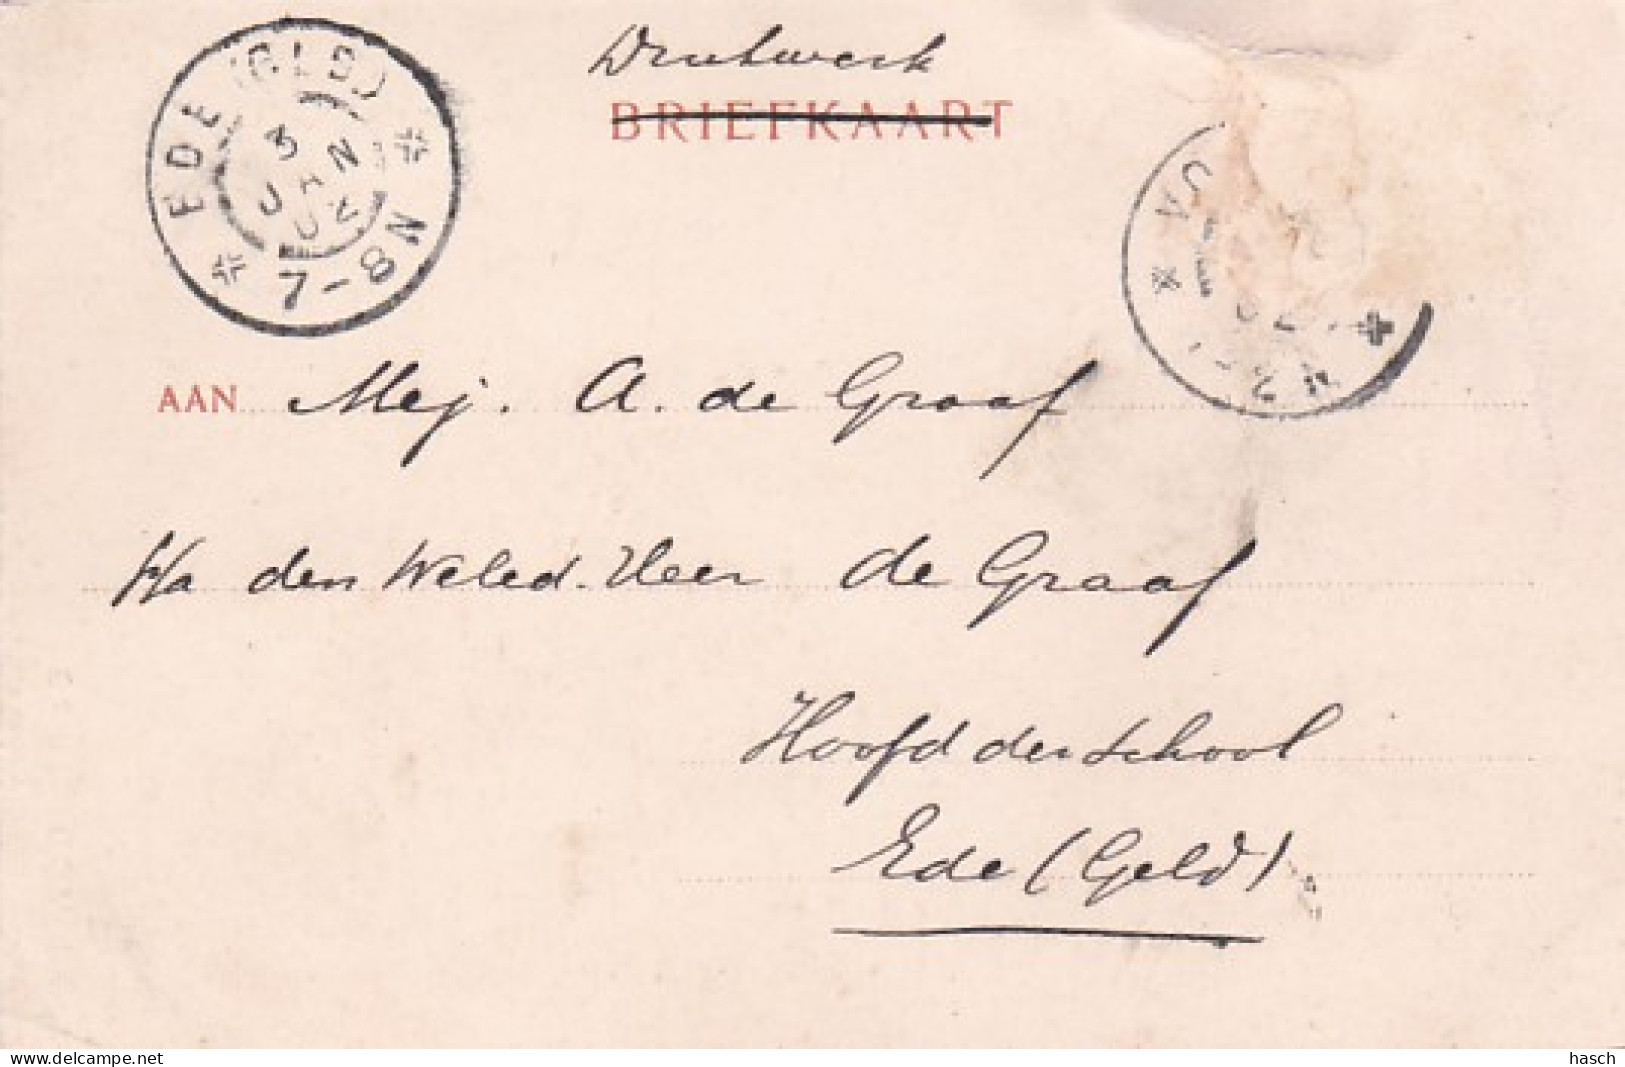 EDE (GLD.)
3 JAN
7-8N
Drukwerk
BRIEFKAART
AAN Mej. A. de Graaf
den Weled. Heer de Graaf
Hoofd der School
Ede (Geld)
hasch